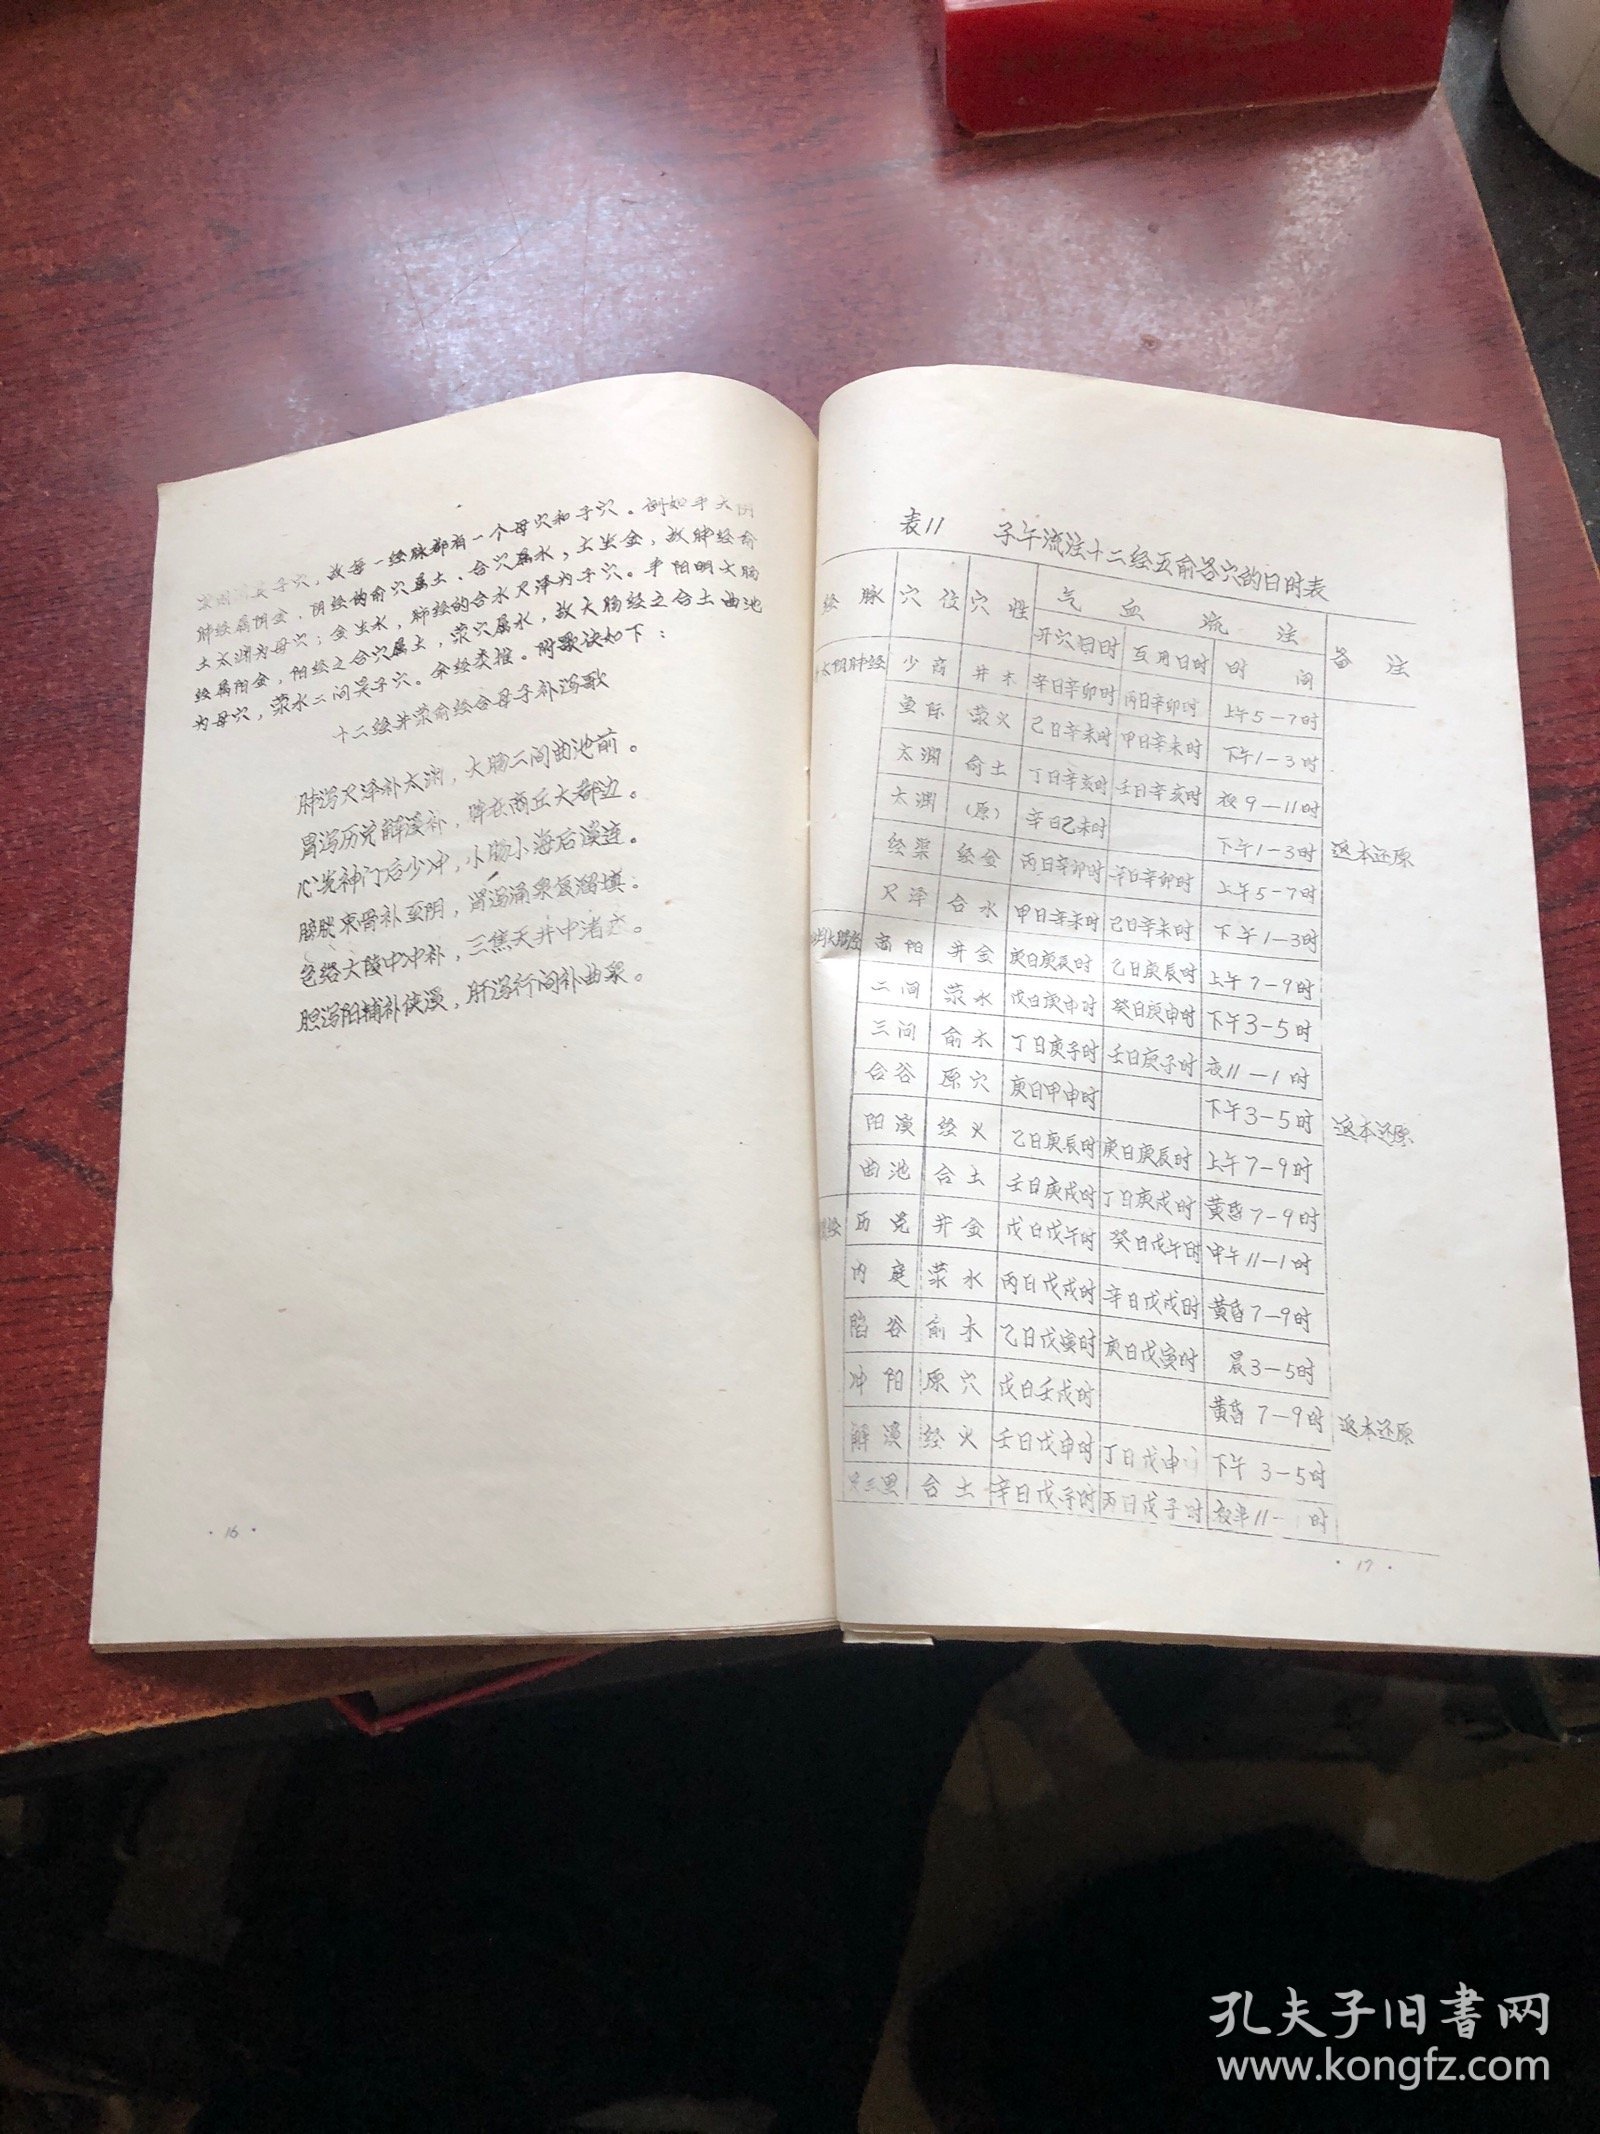 故每一经脉都有一个母穴和子穴。例如手太阴
肺经属阴金，阴经的俞穴属土、合穴属水，土生金，故肺经俞
土太渊为母穴；金生水，肺经的合水尺泽为子穴。手阳明大肠
经属阳金，阳经之合穴属土，荥穴属水，故大肠经之合土曲池
为母穴，荥水二间是子穴。余经类推。附歌诀如下：
十二经井荥俞经合母子补泻歌
肺泻尺泽补太渊，大肠二间曲池前。
胃泻历兑解溪补，脾在商丘大都边。
心先神门后少冲，小肠小海后溪连。
膀胱束骨补至阴，肾泻涌泉复溜填。
包络大陵中冲补，三焦天井中渚
胆泻阳辅补侠溪，肝泻行间补曲泉。
·16·
表11 子午流注十二经五俞各穴的日时表
经脉 穴位 穴性 气血流注 备注
开穴日时 互用日时 时间
手太阴肺经 少商 井木 辛日辛卯时 丙日辛卯时 上午5—7时
鱼际 荥火 己日辛未时 甲日辛未时 下午1—3时
太渊 俞土 丁日辛亥时 壬日辛亥时 夜9—11时
太渊 (原) 辛日乙未时 下午1—3时 返本还原
经渠 经金 丙日辛卯时 辛日辛卯时 上午5—7时
尺泽 合水 甲日辛未时 己日辛未时 下午1—3时
大肠经 商阳 井金 庚日庚辰时 乙日庚辰时 上午7—9时
二间 荥水 戊日庚申时 癸日庚申时 下午3—5时
三间 俞木 丁日庚子时 壬日庚子时 夜11—1时
合谷 原穴 庚日甲申时 下午3—5时 返本还原
阳溪 经火 乙日庚辰时 庚日庚辰时 上午7—9时
曲池 合土 壬日庚戌时 丁日庚戌时 黄昏7—9时
胃经 历兑 井金 戊日戊午时 癸日戊午时 中午11—1时
内庭 荥水 丙日戊戌时 辛日戊戌时 黄昏7—9时
陷谷 俞木 乙日戊寅时 庚日戊寅时 晨3—5时
冲阳 原穴 戊日壬戌时 黄昏7—9时 返本还原
解溪 经火 壬日戊申时 丁日戊申 下午3—5时
三里 合土 辛日戊子时 丙日戊子时 夜半11— 时
·17·
孔夫子旧书网
www.kongfz.com